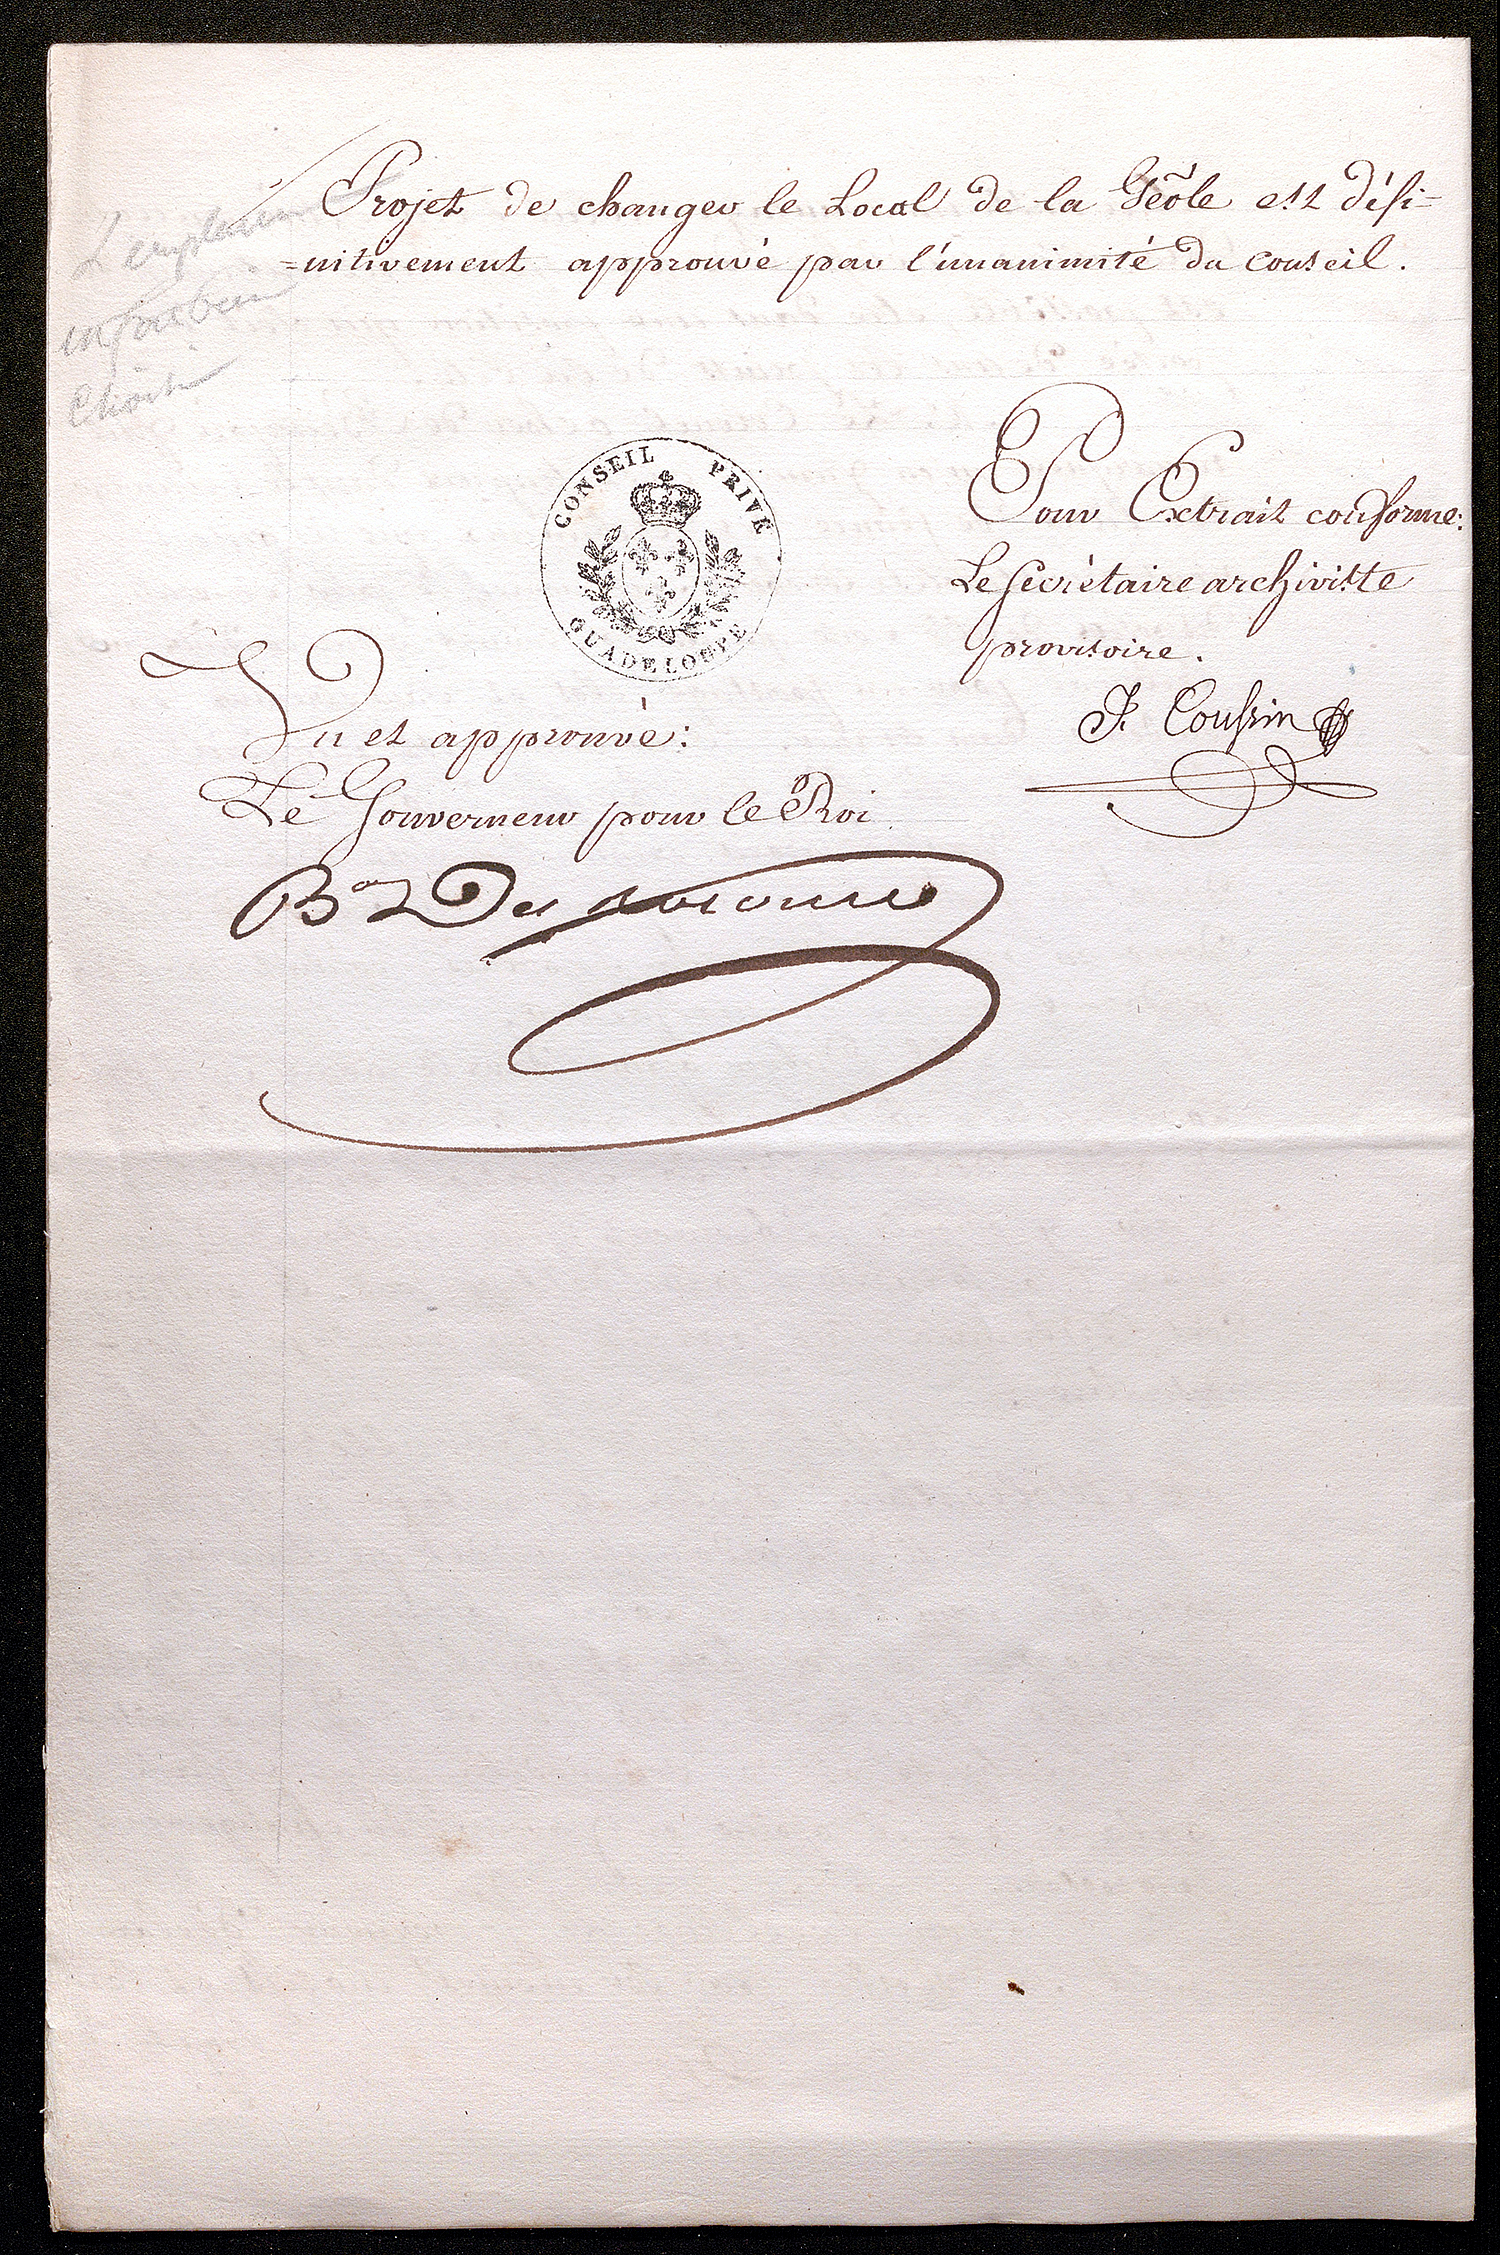 Projet de changer le Local de la Geôle est défi=
=nitivement approuvé par l'unanimité du conseil.
L'emplacement
est fort bien
choisi
CONSEIL PRIVÉ
GUADELOUPE
Pour Extrait conforme:
Le Secrétaire archiviste
provisoire.
J. Coussin
Vu et approuvé:
Le Gouverneur pour le Roi
Bon Des Rotours